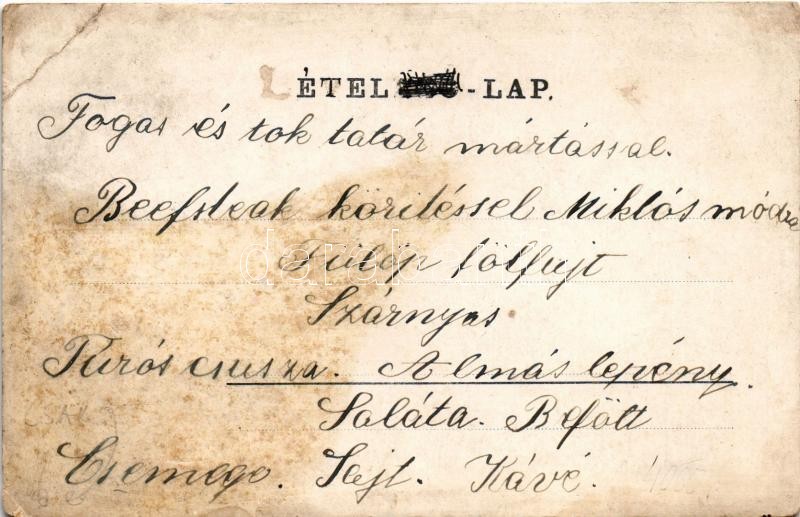 ÉTEL -LAP.
Fogas és tok tatár mártással.
Beefsteak körítéssel Miklós módra
Fülöp fölfujt
Szárnyas
Túrós csusza. Almás lepény.
Saláta. Befőtt
Csemege. Sajt. Kávé.